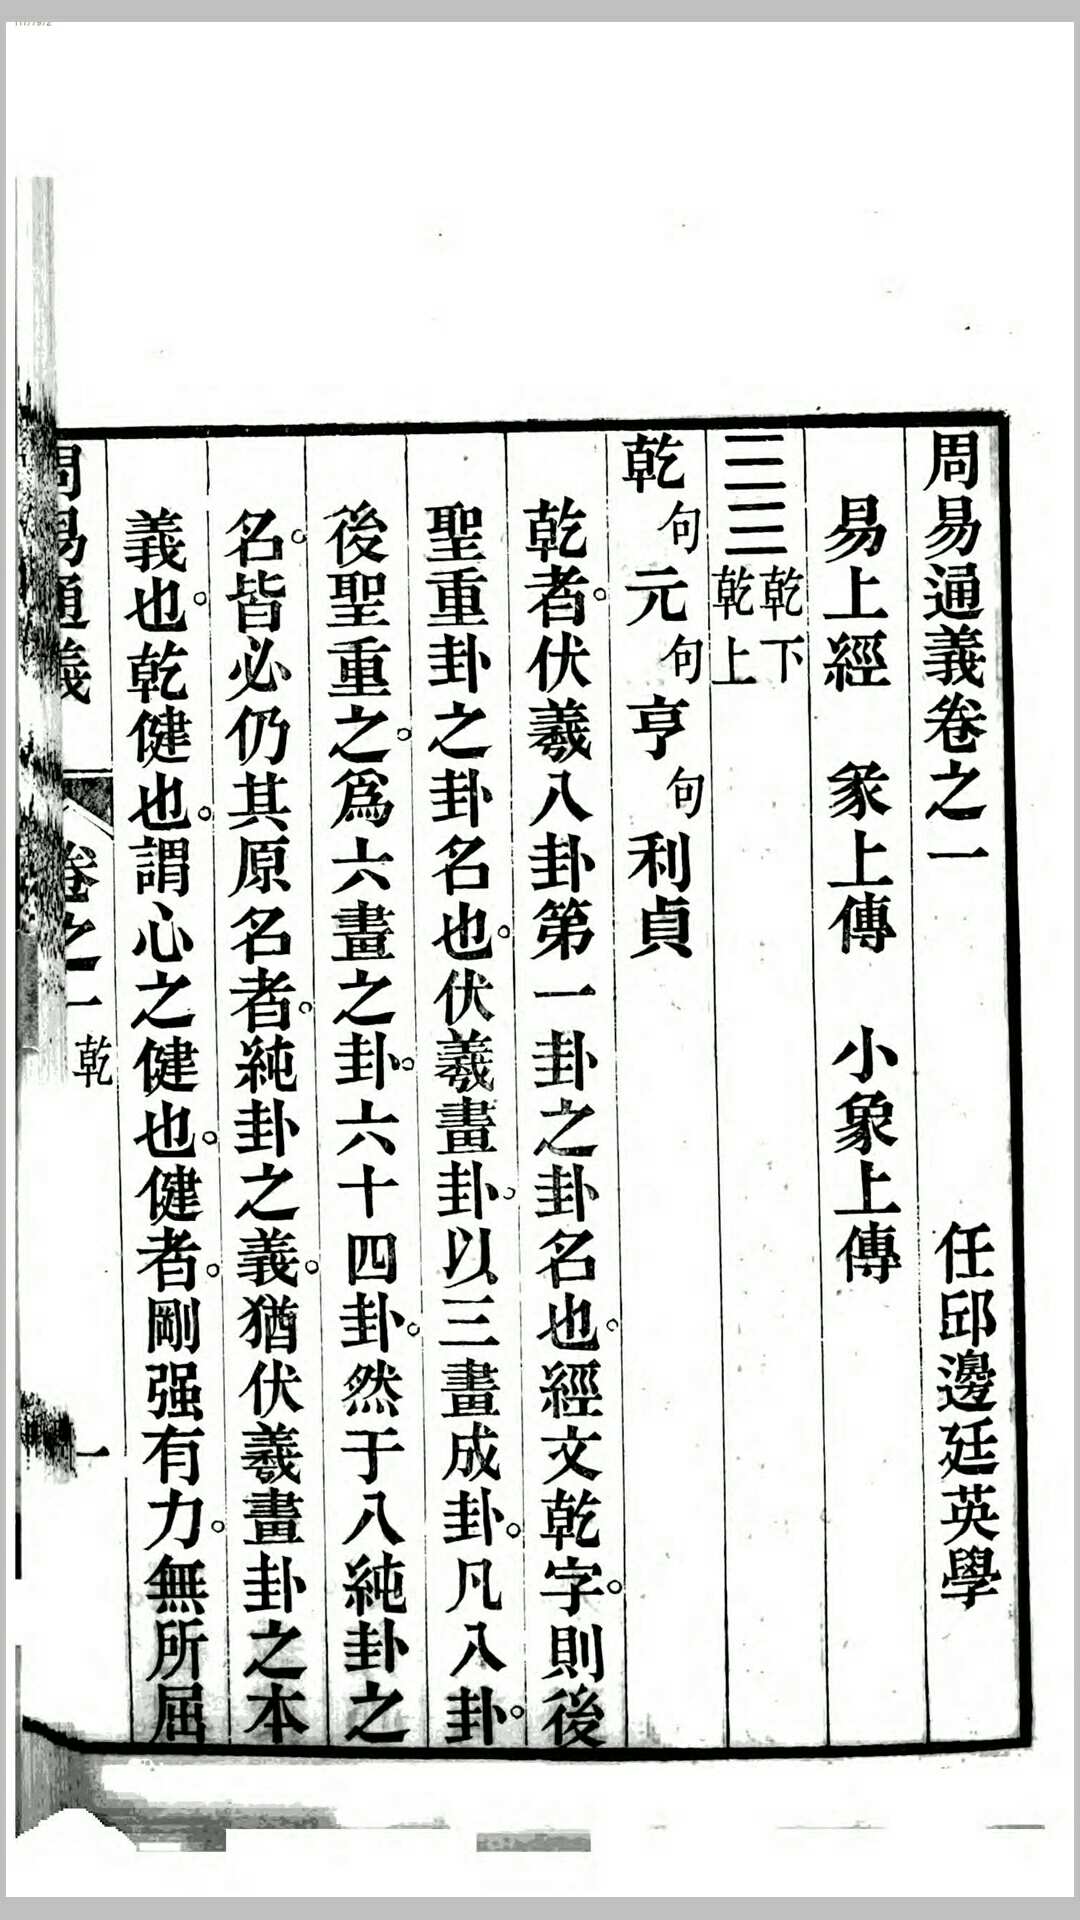 周易通義卷之一　任邱邊廷英學
易上經　彖上傳　小象上傳
☰☰乾下乾上
乾句元句亨句利貞
乾者。伏羲八卦第一卦之卦名也。經文乾字。則後
聖重卦之卦名也。伏羲畫卦。以三畫成卦。凡八卦。
後聖重之。爲六畫之卦。六十四卦。然于八純卦之
名。皆必仍其原名者。純卦之義。猶伏羲畫卦之本
義也。乾健也。謂心之健也。健者。剛强有力。無所屈
周易通義　卷之一乾　一